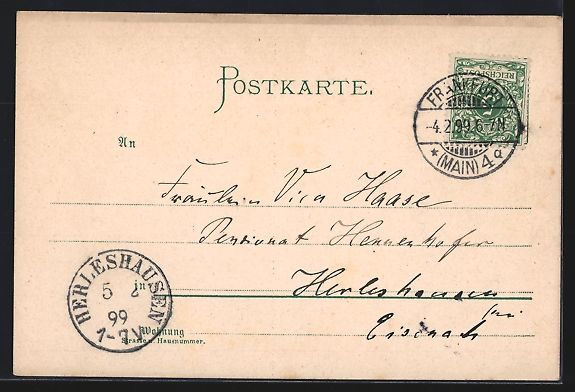 POSTKARTE.
REICHSPOST
FRANKFURT
-4.2.99.6-7N
* (MAIN) 4 a
An
Fräulein Vica Haase
Pensionat Hennenhofer
HERLESHAUSEN
5 2
99
1-7V
in
Herleshausen
bei
Eisenach
Wohnung
Strasse u. Hausnummer.